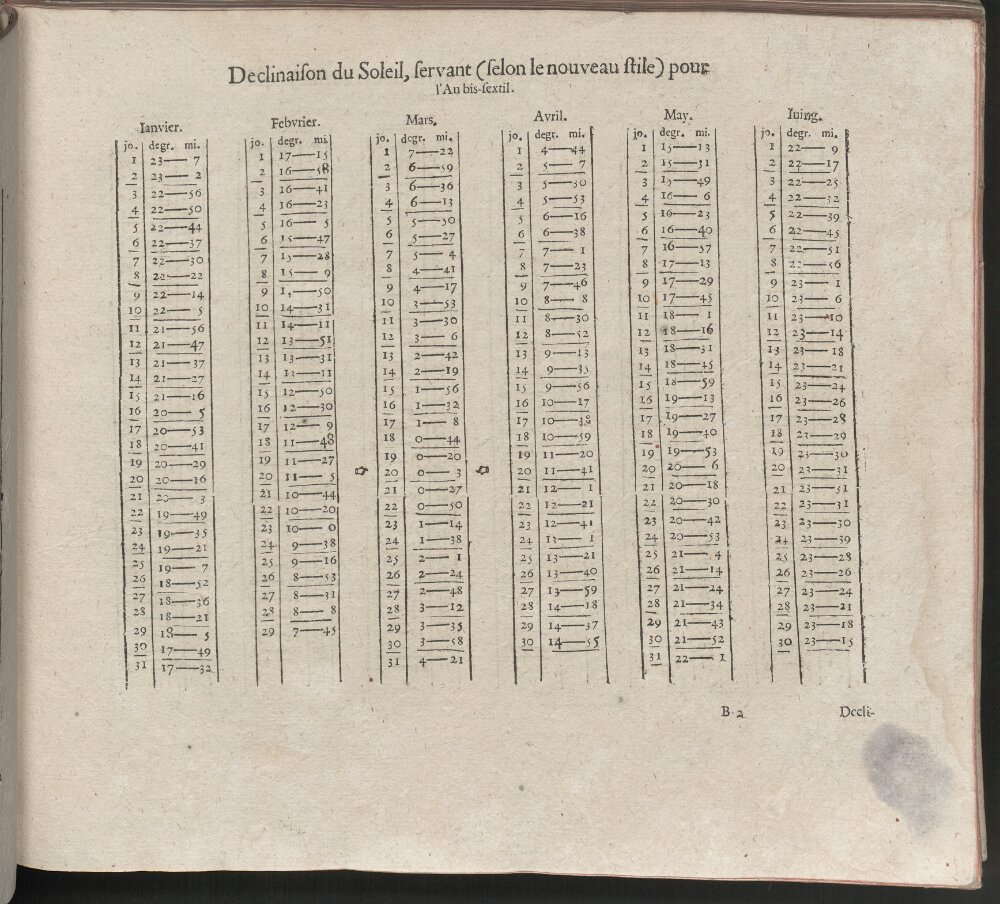 Declinaiſon du Soleil, ſervant (ſelon le nouveau ſtile) pour
l'An bis-ſextil.
Ianvier.
jo. degr. mi.
1 23—7
2 23—2
3 22—56
4 22—50
5 22—44
6 22—37
7 22—30
8 22—22
9 22—14
10 22—5
11 21—56
12 21—47
13 21—37
14 21—27
15 21—16
16 20—5
17 20—53
18 20—41
19 20—29
20 20—16
21 20—3
22 19—49
23 19—35
24 19—21
25 19—7
26 18—52
27 18—36
28 18—21
29 18—5
30 17—49
31 17—32
Febvrier.
jo. degr. mi.
1 17—15
2 16—58
3 16—41
4 16—23
5 16—5
6 15—47
7 15—28
8 15—9
9 1,—50
10 14—31
11 14—11
12 13—51
13 13—31
14 13—11
15 12—50
16 12—30
17 12—9
18 11—48
19 11—27
20 11—5
21 10—44
22 10—20
23 10—0
24 9—38
25 9—16
26 8—53
27 8—31
28 8—8
29 7—45
Mars.
jo. degr. mi.
1 7—22
2 6—59
3 6—36
4 6—13
5 5—50
6 5—27
7 5—4
8 4—41
9 4—17
10 3—53
11 3—30
12 3—6
13 2—42
14 2—19
15 1—56
16 1—32
17 1—8
18 0—44
19 0—20
20 0—3
21 0—27
22 0—50
23 1—14
24 1—38
25 2—1
26 2—24
27 2—48
28 3—12
29 3—35
30 3—58
31 4—21
Avril.
jo. degr. mi.
1 4—44
2 5—7
3 5—30
4 5—53
5 6—16
6 6—38
7 7—1
8 7—23
9 7—46
10 8—8
11 8—30
12 8—52
13 9—13
14 9—35
15 9—56
16 10—17
17 10—38
18 10—59
19 11—20
20 11—41
21 12—1
22 12—21
23 12—41
24 13—1
25 13—21
26 13—40
27 13—59
28 14—18
29 14—37
30 14—55
May.
jo. degr. mi.
1 15—13
2 15—31
3 15—49
4 16—6
5 16—23
6 16—40
7 16—57
8 17—13
9 17—29
10 17—45
11 18—1
12 18—16
13 18—31
14 18—45
15 18—59
16 19—13
17 19—27
18 19—40
19 19—53
20 20—6
21 20—18
22 20—30
23 20—42
24 20—53
25 21—4
26 21—14
27 21—24
28 21—34
29 21—43
30 21—52
31 22—1
Iuing.
jo. degr. mi.
1 22—9
2 22—17
3 22—25
4 22—32
5 22—39
6 22—45
7 22—51
8 22—56
9 23—1
10 23—6
11 23—10
12 23—14
13 23—18
14 23—21
15 23—24
16 23—26
17 23—28
18 23—29
19 23—30
20 23—31
21 23—31
22 23—31
23 23—30
24 23—39
25 23—28
26 23—26
27 23—24
28 23—21
29 23—18
30 23—15
B 2
Decli-